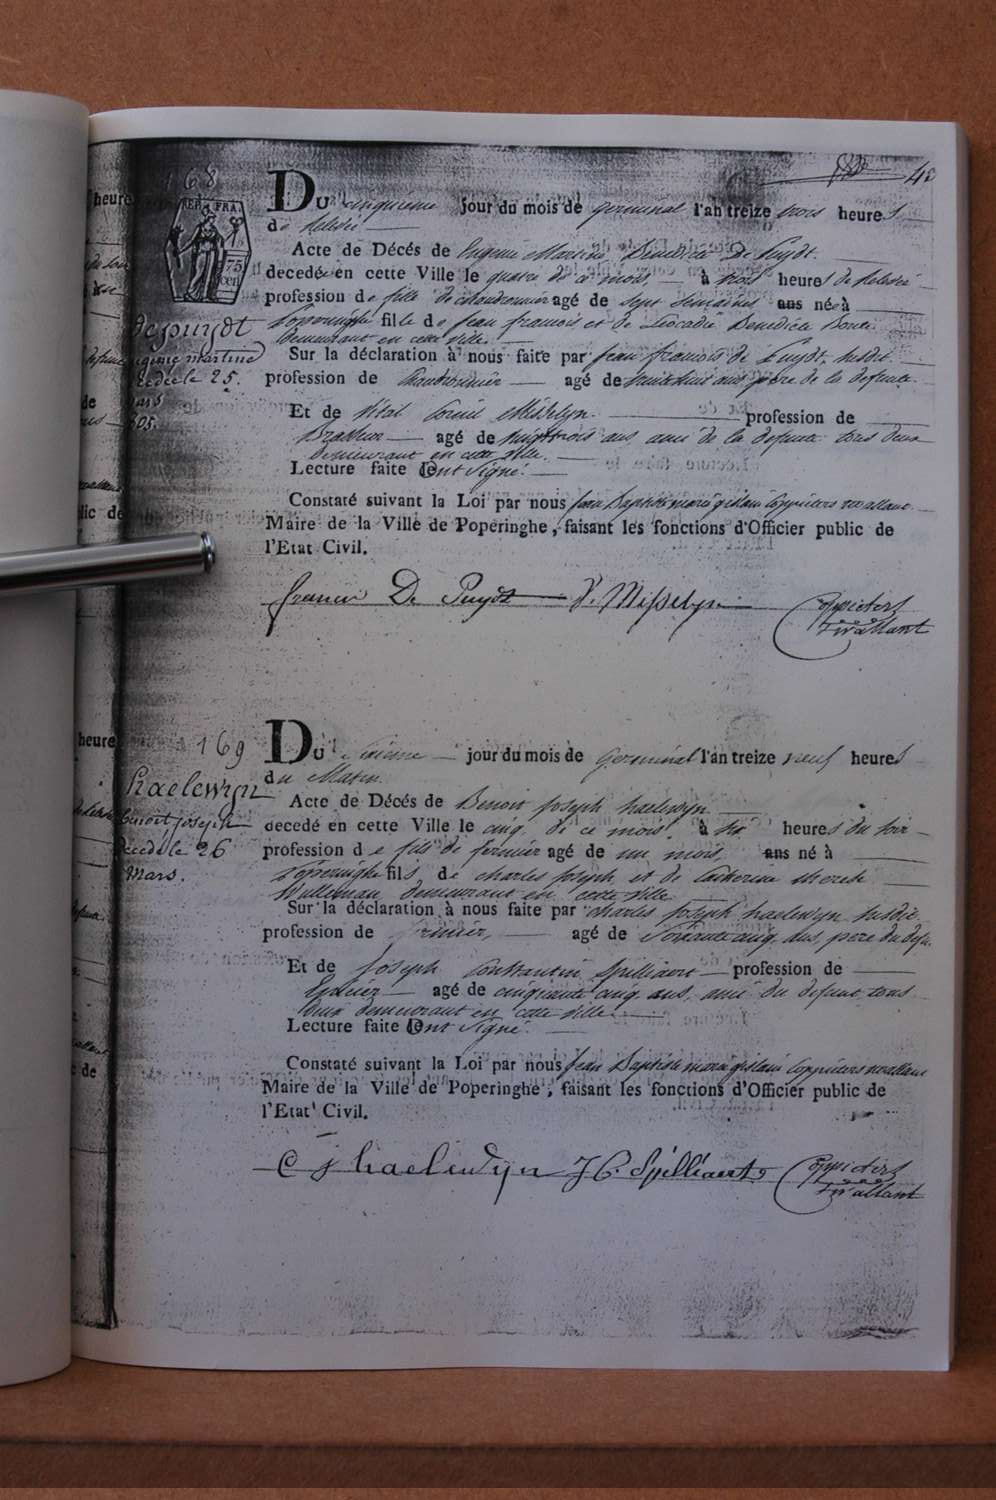 168
REP. FRA.
75
cen
Du cinquieme jour du mois de germinal l'an treize trois heures
de relevée
Acte de Décés de Eugenie Martine Benedicte De Puydt.
decedée en cette Ville le quatre de ce mois, à trois heures de Relevée
profession de fille de chaudronnier agé de sept semaines ans née à
depuydt
Poperinghe fille de Jean francois et de Leocadie Benedicte
demeurant en cette ville.
eugenie martine
Sur la déclaration à nous faite par jean francois de Puydt, susdit
decedée le 25.
profession de Chaudronnier agé de trente huit ans pere de la defunte.
mars
Et de Vital Misselyn. profession de
Brasseur agé de vingt trois ans, ami de la defunte tous deux
demeurant en cette ville.
Lecture faite ont Signé.
Constaté suivant la Loi par nous Jean Baptiste marie gislain Coppieters wallant
Maire de la Ville de Poperinghe, faisant les fonctions d'Officier public de
l'Etat Civil.
francois De Puydt V. Misselyn Coppieters
t'wallant
heure
169
Du Sixieme jour du mois de Germinal l'an treize neuf heures
du Matin
haelewyn
Acte de Décés de Benoit joseph haelewyn
benoit joseph
decedé en cette Ville le cinq de ce mois, à heures du soir
decedé le 26
profession de fils de fermier agé de un mois, ans né à
mars.
Poperinghe fils de charles joseph et de Catherine therese
Wulleman demeurant en cette ville
Sur la déclaration à nous faite par charles joseph haelewyn susdit
profession de fermier, agé de Soixante cinq ans, pere du defu.
Et de Joseph Constantin Spilliaert profession de
agé de cinquante cinq ans, ami du defunt, tous
deux demeurant en cette ville.
Lecture faite ont Signé.
Constaté suivant la Loi par nous Jean Baptiste marie gislain Coppieters wallant
Maire de la Ville de Poperinghe, faisant les fonctions d'Officier public de
l'Etat Civil.
C j haelewyn J C Spilliaert Coppieters
t'wallant